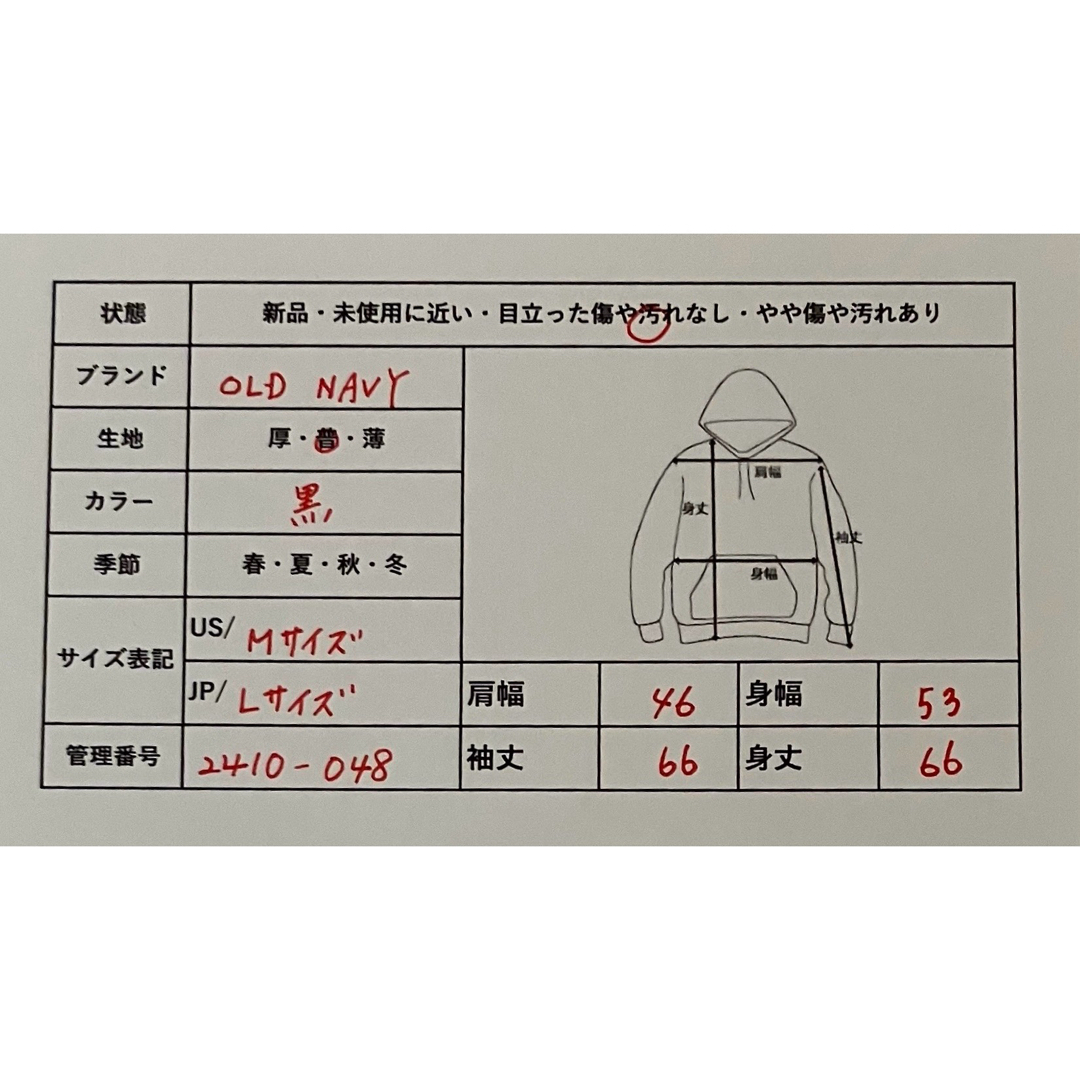 状態 新品・未使用に近い・目立った傷や汚れなし・やや傷や汚れあり
ブランド OLD NAVY
生地 厚・普・薄
カラー 黒
季節 春・夏・秋・冬
サイズ表記
US/ Mサイズ
JP/ Lサイズ
管理番号 2410-048
肩幅
身丈
袖丈
身幅
肩幅 46 身幅 53
袖丈 66 身丈 66